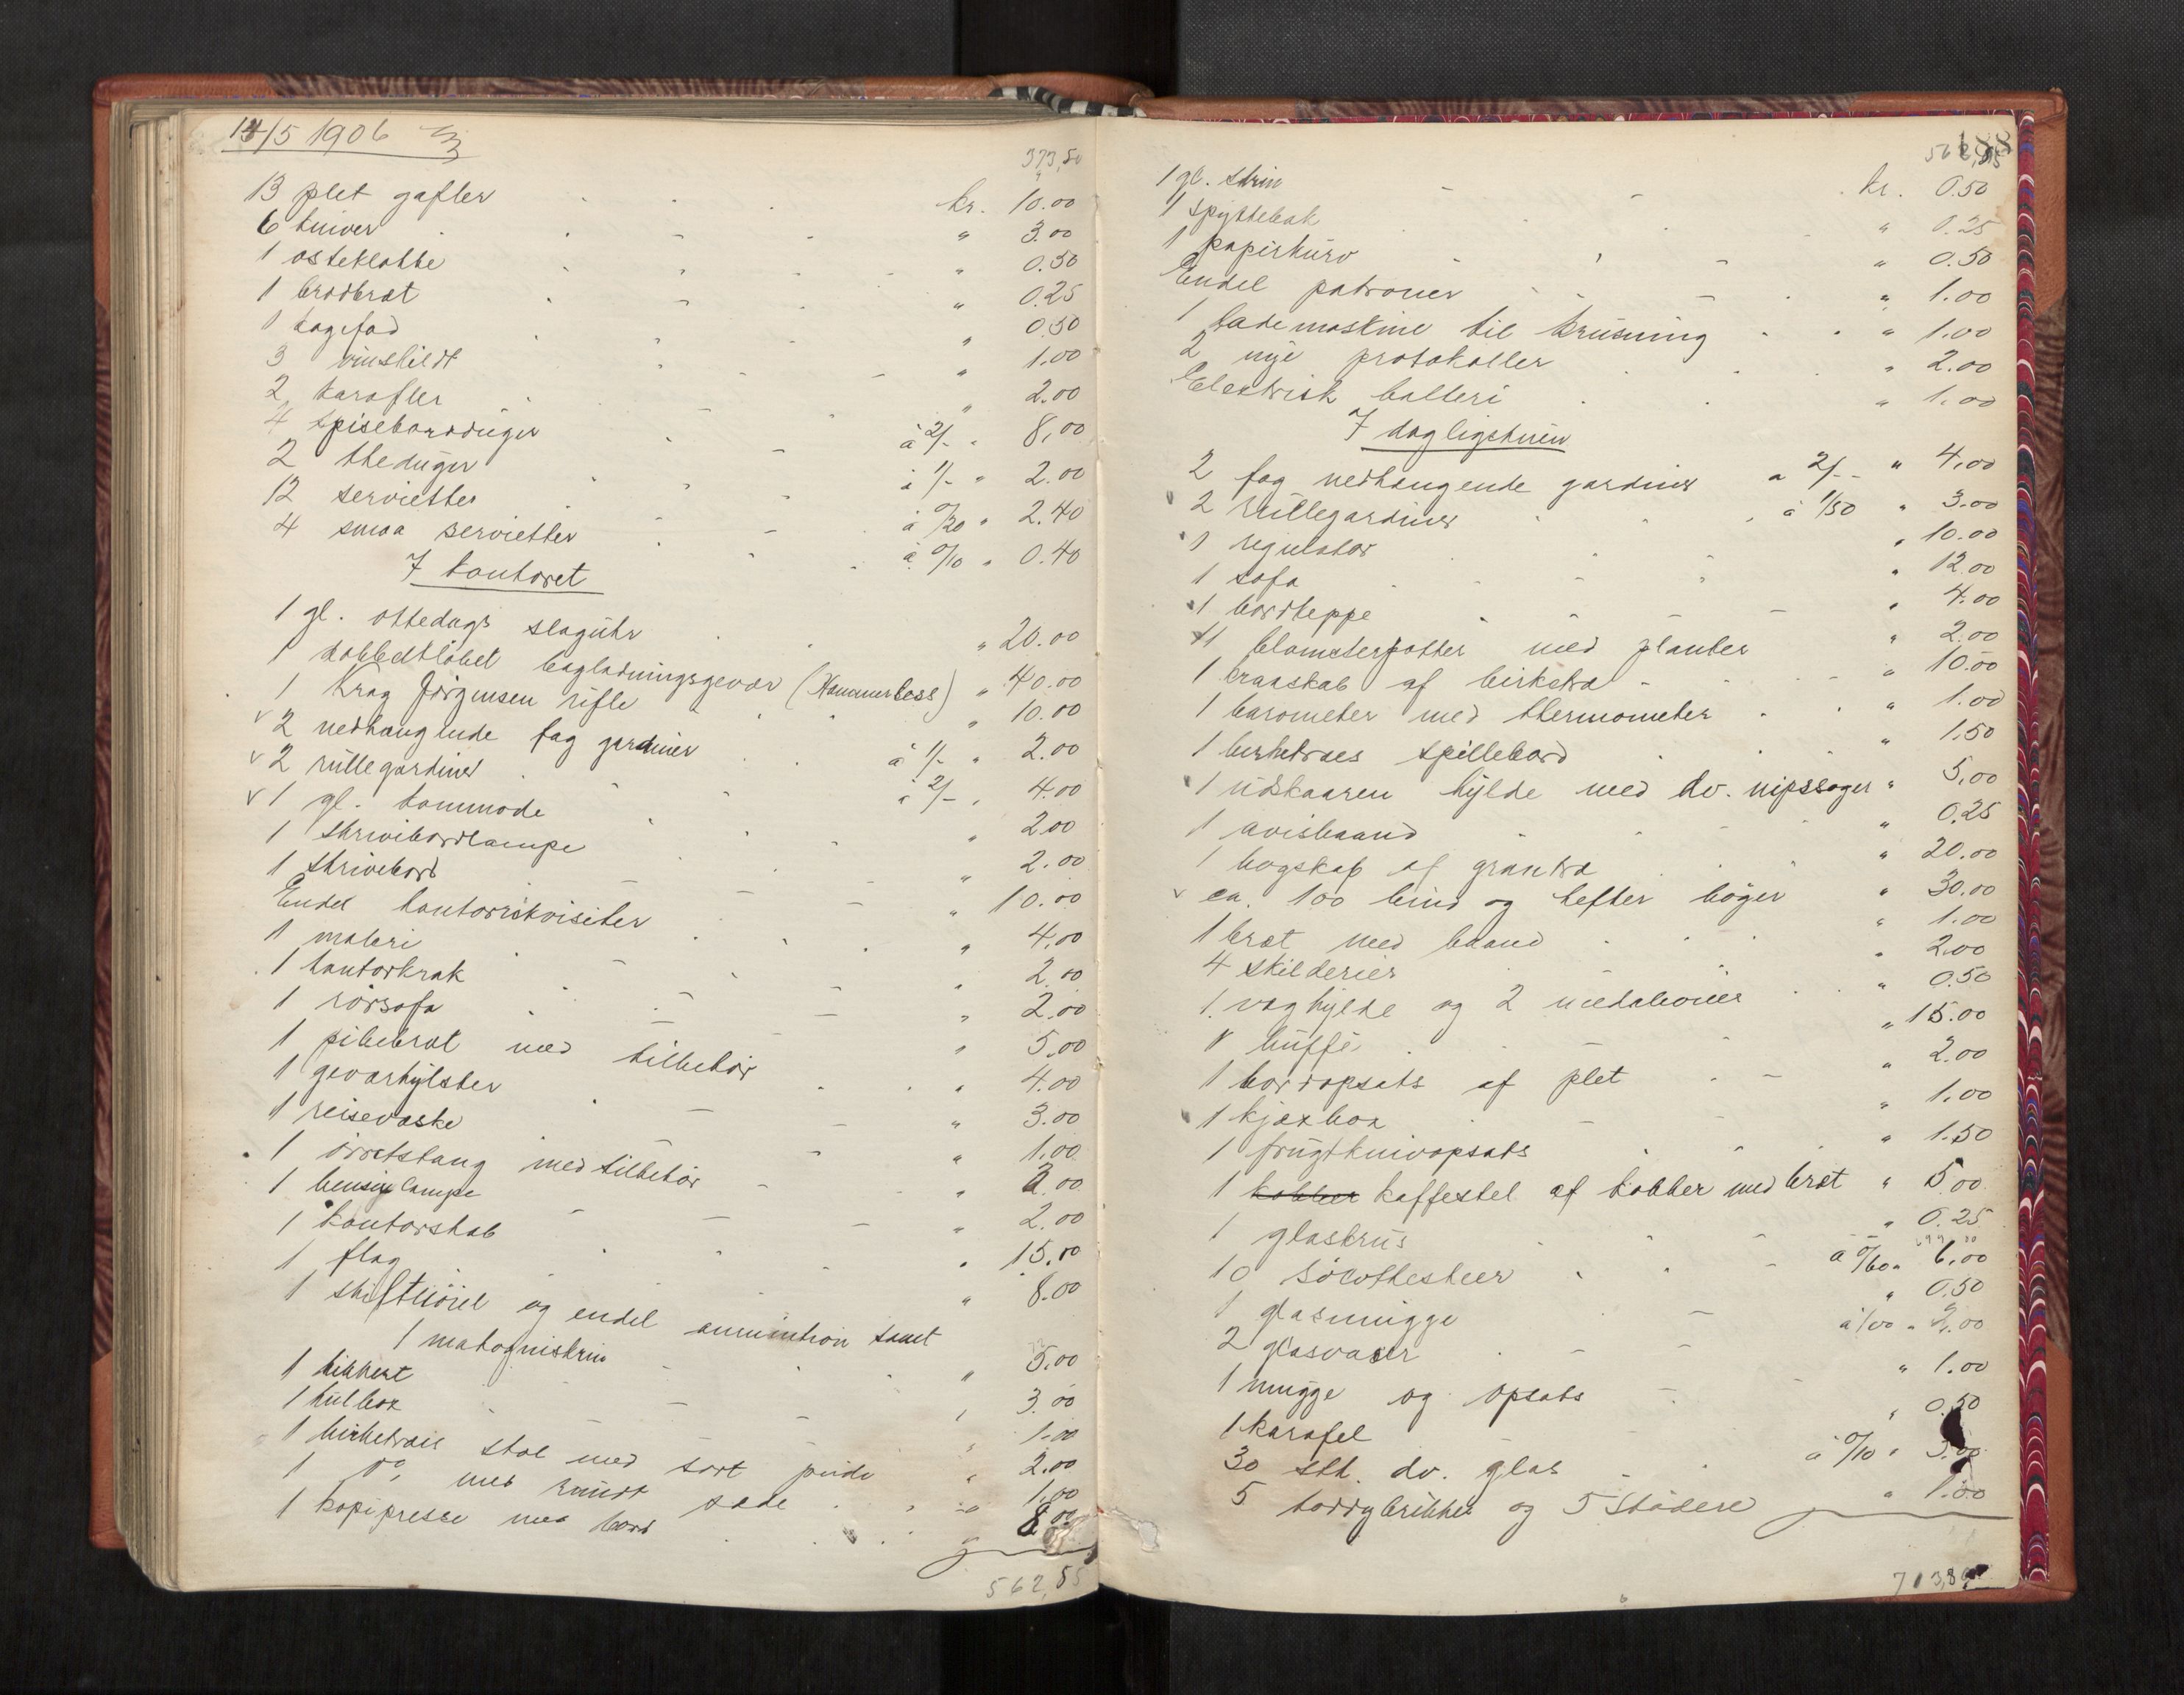 14/5 1906
373,50
13 plet gafler kr. 10.00
6 kniver " 3.00
1 osteklokke " 0.50
1 brødbræt " 0.25
1 kagefad " 0.50
3 vinskildt " 1.00
2 karafler " 2.00
4 spisebordduger à 2/- " 8,00
2 theduger à 1/- " 2.00
12 servietter à 0/20 " 2.40
4 smaa servietter à 0/10 " 0.40
I kontoret
1 gl. ottedags slaguhr " 20.00
1 dobbeltløbet bagladningsgevær (Hammerless) " 40.00
1 Krag Jörgensen rifle " 10.00
2 nedhængende fag gardiner à 1/- " 2.00
2 rullegardiner à 2/- " 4.00
1 gl. kommode " 2.00
1 skrivebordlampe " 2.00
1 skrivebord " 10.00
Endel kontorrekvisiter " 4,00
1 maleri " 2.00
1 kontorkrak " 2.00
1 rørsofa " 5.00
1 pibebræt med tilbehør " 4.00
1 geværhylster " 3.00
1 reisevæske " 1.00
1 ørretstang med tilbehør " 2.00
1 bensinlampe " 2.00
1 kontorskab " 15.00
1 flag " 8.00
1 skiftnögel og endel ammunition samt
1 mahogniskrin " 5.00
1 kikkert " 3.00
1 kulbox " 1.00
1 birketræs stol med sort pude " 2.00
1 do med rundt sæde " 1.00
1 kopipresse med bord " 8.00
562,55
188
562,55
1 gl. skrin kr. 0.50
1 spyttebak " 0.25
1 papirkurv " 0.50
Endel patroner " 1.00
1 lademaskine til krusning " 1.00
2 nye protokoller " 2.00
Elektrisk batteri " 1.00
I dagligstuen
2 fag nedhængende gardiner à 2/- " 4,00
2 rullegardiner à 1/50 " 3.00
1 regulator " 10.00
1 sofa " 12.00
1 bordteppe " 4.00
11 blomsterpotter med planter " 2.00
1 braaskab af birketræ " 10.00
1 barometer med thermometer " 1.00
1 birketræes spillebord " 1.50
1 udskaaren hylde med dv. nipssager " 5,00
1 avisbaand " 0.25
1 bogskab af grantræ " 20.00
ca. 100 bind og hefter bøger " 30.00
1 bræt med baand " 1.00
4 skilderier " 2.00
1 væghylde og 2 medaljoner " 0.50
1 buffé " 15.00
1 bordopsats af plet " 2.00
1 kjæxbox " 1.00
1 frugtknivopsats " 1.50
1 kobber kaffestel af kobber med bræt " 5.00
1 glaskrus " 0.25
10 sølvtheskeer à 0/60 " 6,00
1 glasmugge " 0.50
2 glasvaser à 1/00 " 2,00
1 mugge og opsats " 1.00
1 karafel " 0.50
30 stk. dv. glas à 0/10 " 3.00
5 toddybrikker og 5 stödere " 1.00
713,80